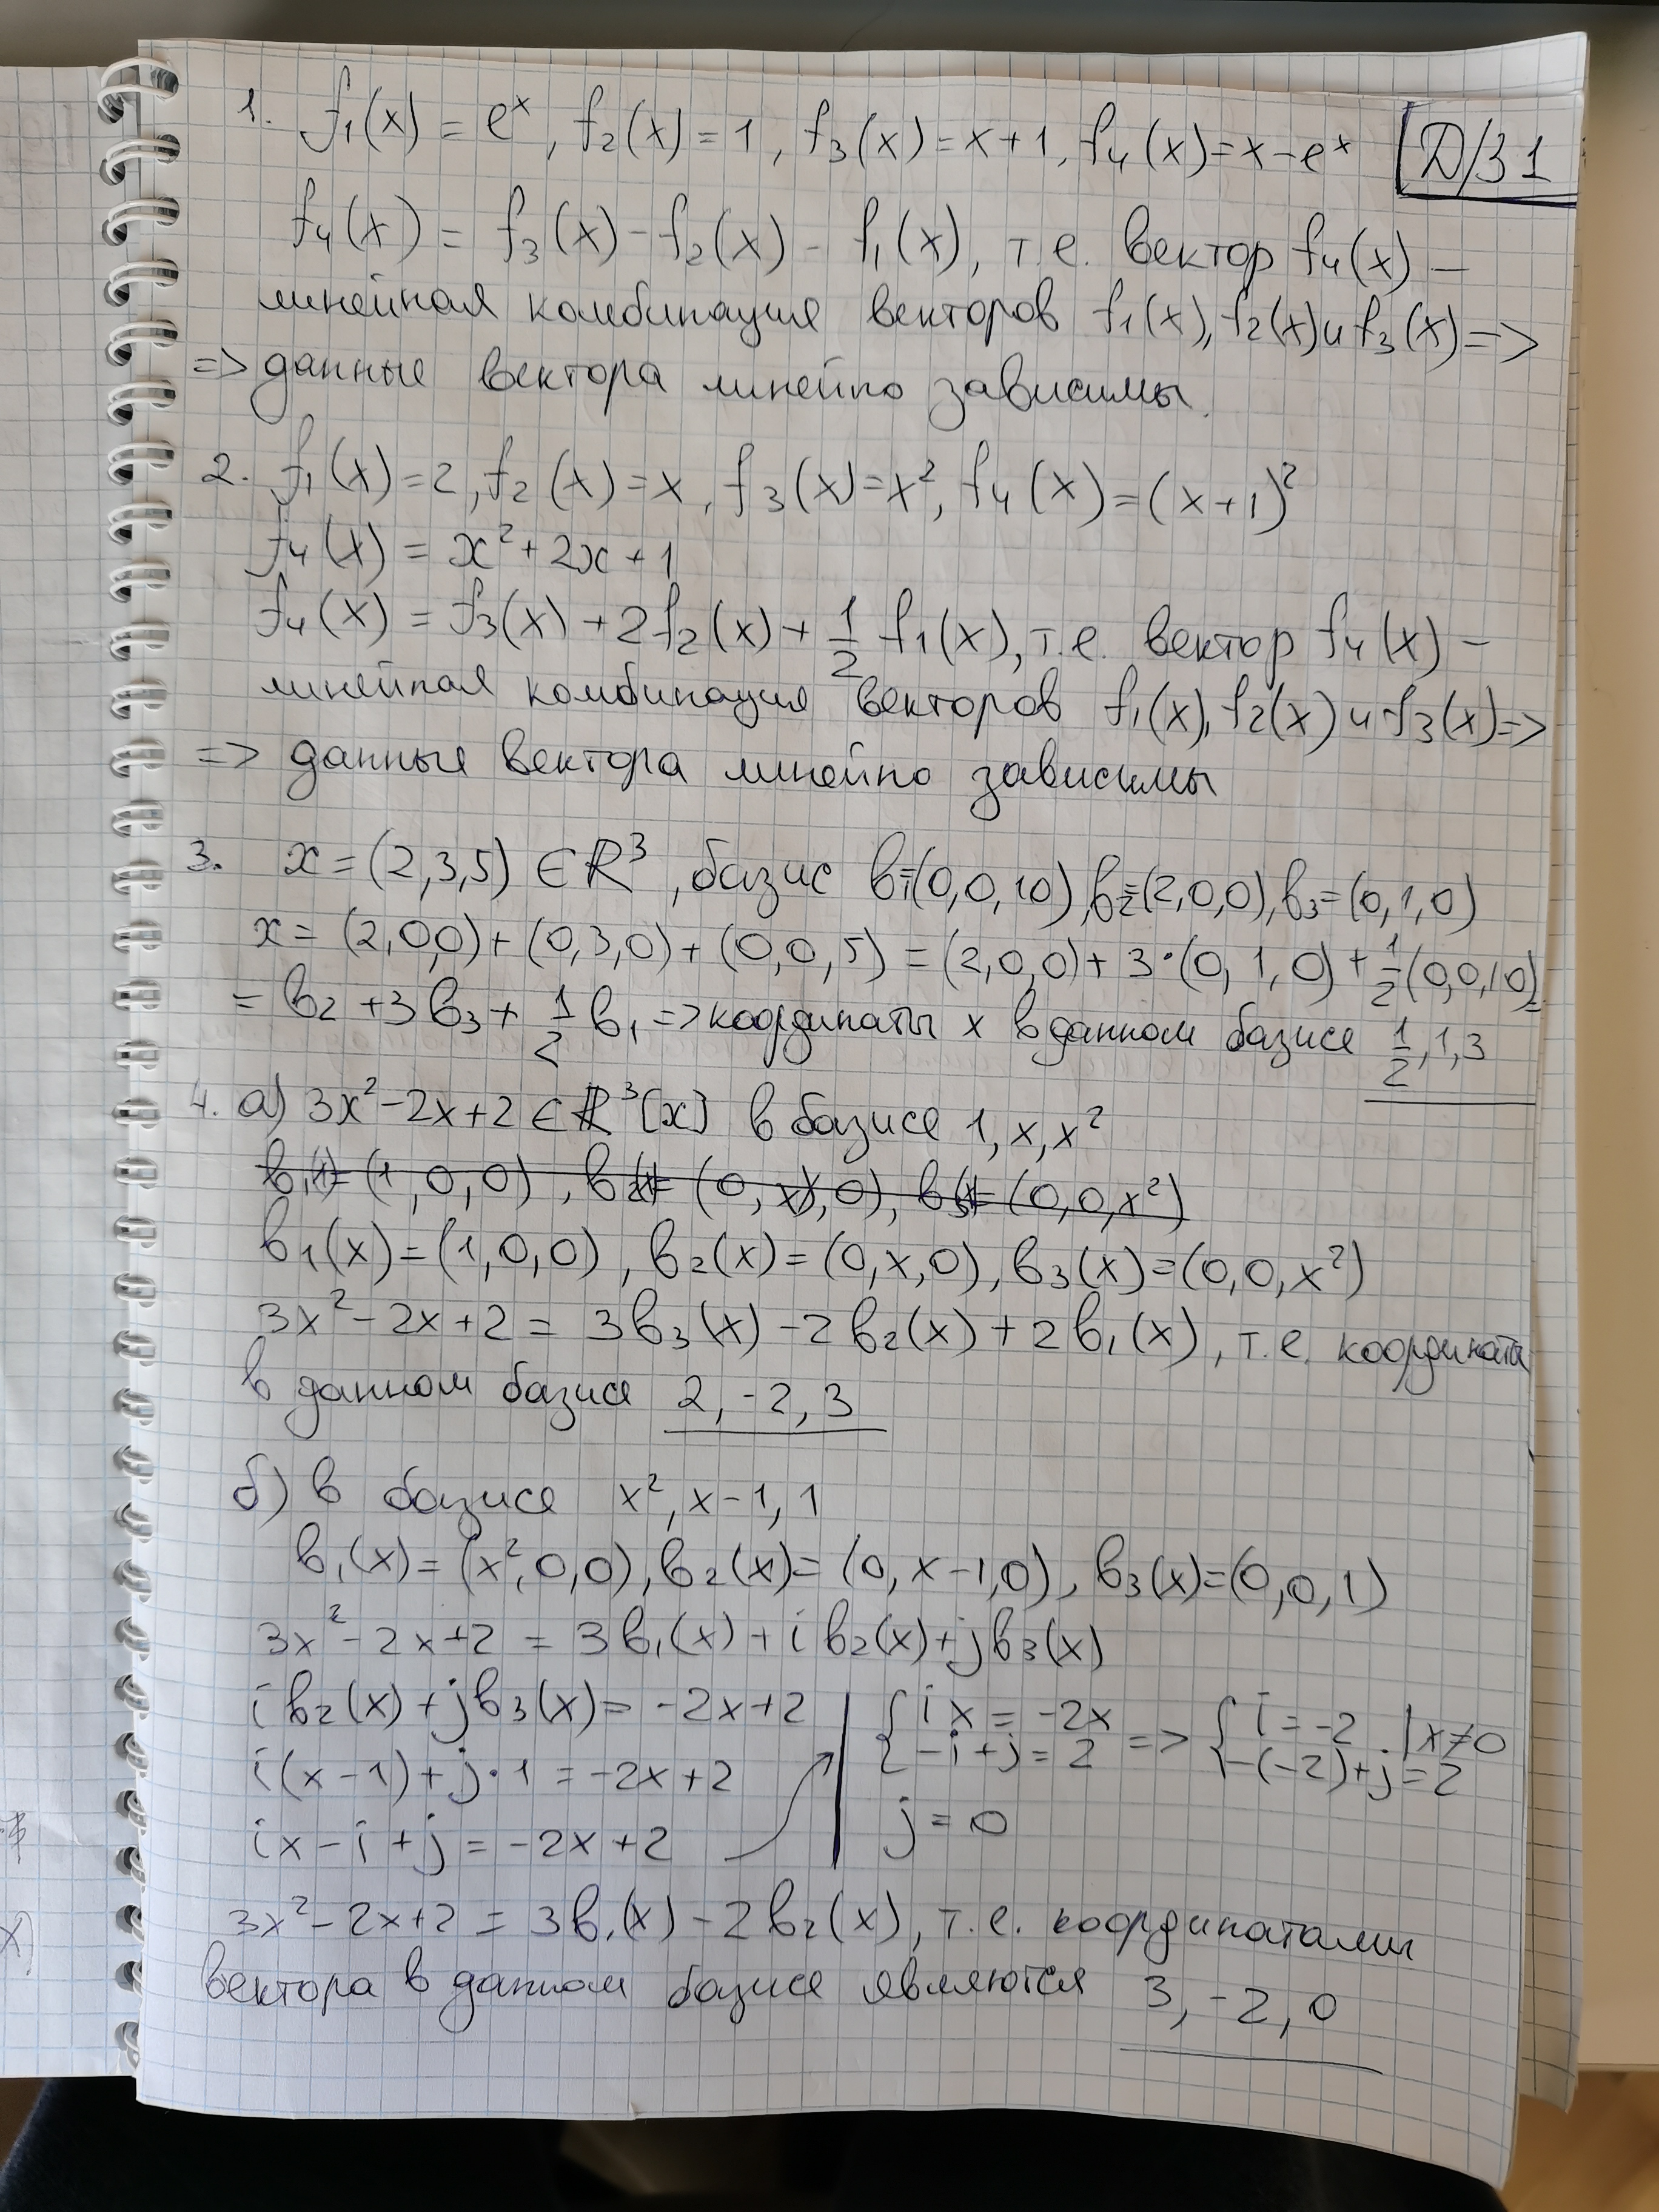 1. f₁(x) = eˣ, f₂(x) = 1, f₃(x) = x+1, f₄(x) = x-eˣ
Д/З 1
f₄(x) = f₃(x) - f₂(x) - f₁(x), т.е. вектор f₄(x) —
линейная комбинация векторов f₁(x), f₂(x) и f₃(x) =>
=> данные вектора линейно зависимы.
2. f₁(x) = 2, f₂(x) = x, f₃(x) = x², f₄(x) = (x+1)²
f₄(x) = x² + 2x + 1
f₄(x) = f₃(x) + 2f₂(x) + 1/2 f₁(x), т.е. вектор f₄(x) —
линейная комбинация векторов f₁(x), f₂(x) и f₃(x) =>
=> данные вектора линейно зависимы
3. x = (2,3,5) ∈ R³, базис b₁=(0,0,10), b₂=(2,0,0), b₃=(0,1,0)
x = (2,0,0) + (0,3,0) + (0,0,5) = (2,0,0) + 3·(0,1,0) + 1/2(0,0,10)=
= b₂ + 3b₃ + 1/2 b₁ => координаты x в данном базисе 1/2, 1, 3
4. а) 3x²-2x+2 ∈ R³[x] в базисе 1, x, x²
b₁(x) = (1,0,0), b₂(x) = (0,x,0), b₃(x) = (0,0,x²)
3x² - 2x + 2 = 3b₃(x) - 2b₂(x) + 2b₁(x), т.е. координаты
в данном базисе 2, -2, 3
б) в базисе x², x-1, 1
b₁(x) = (x²,0,0), b₂(x) = (0, x-1,0), b₃(x) = (0,0,1)
3x² - 2x + 2 = 3b₁(x) + i b₂(x) + j b₃(x)
i b₂(x) + j b₃(x) = -2x+2
i(x-1) + j·1 = -2x+2
ix - i + j = -2x+2
{ ix = -2x => { i = -2 | x≠0
-i + j = 2 -(-2)+j = 2
j = 0
3x² - 2x + 2 = 3b₁(x) - 2b₂(x), т.е. координатами
вектора в данном базисе являются 3, -2, 0